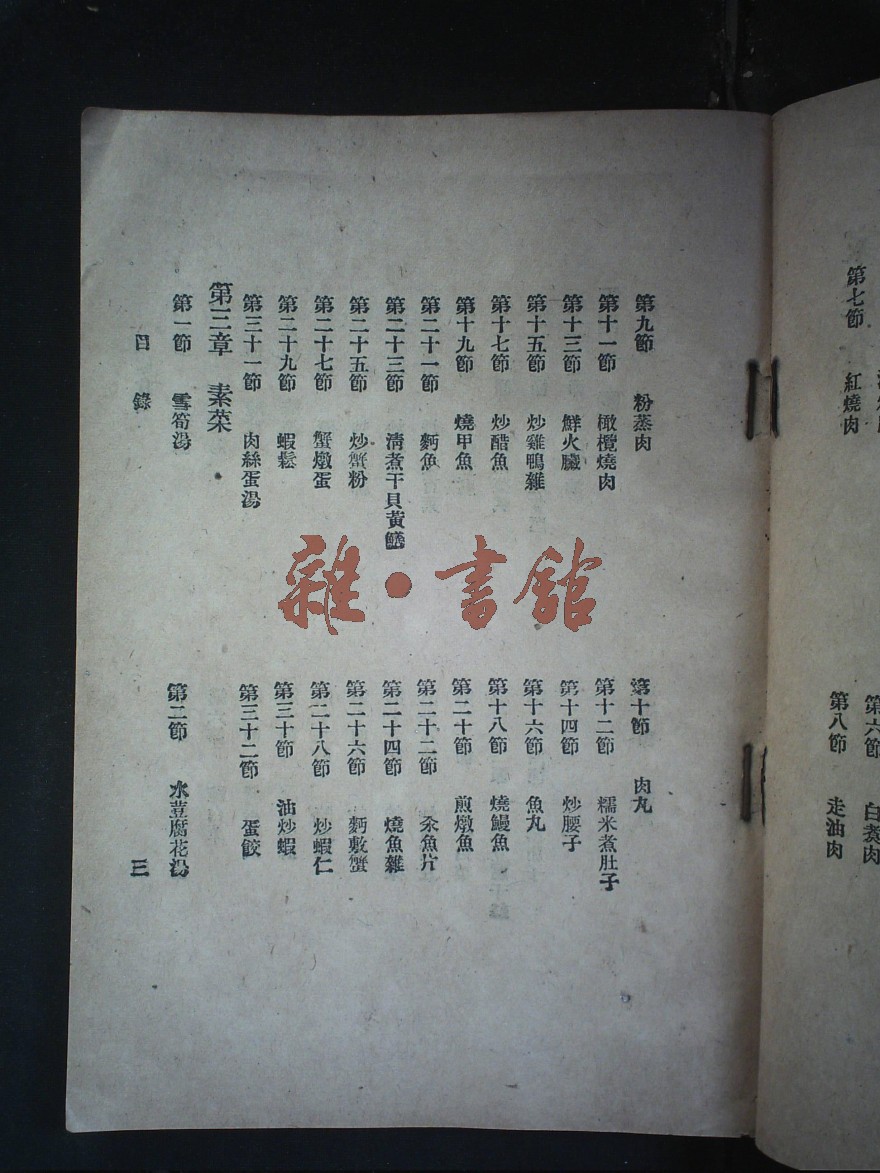 第七節　紅燒肉
第六節　白煑肉
第八節　走油肉
第九節　粉蒸肉
第十節　肉丸
第十一節　橄欖燒肉
第十二節　糯米煮肚子
第十三節　鮮火臟
第十四節　炒腰子
第十五節　炒雞鴨雜
第十六節　魚丸
第十七節　炒醋魚
第十八節　燒鰻魚
第十九節　燒甲魚
第二十節　煎燉魚
第二十一節　麪魚
第二十二節　氽魚片
第二十三節　清煮干貝黃鱔
第二十四節　燒魚雜
第二十五節　炒蟹粉
第二十六節　麪敷蟹
第二十七節　蟹燉蛋
第二十八節　炒蝦仁
第二十九節　蝦鬆
第三十節　油炒蝦
第三十一節　肉絲蛋湯
第三十二節　蛋餃
第三章　素菜
第一節　雪筍湯
第二節　水荳腐花湯
目錄　三
雜·書館